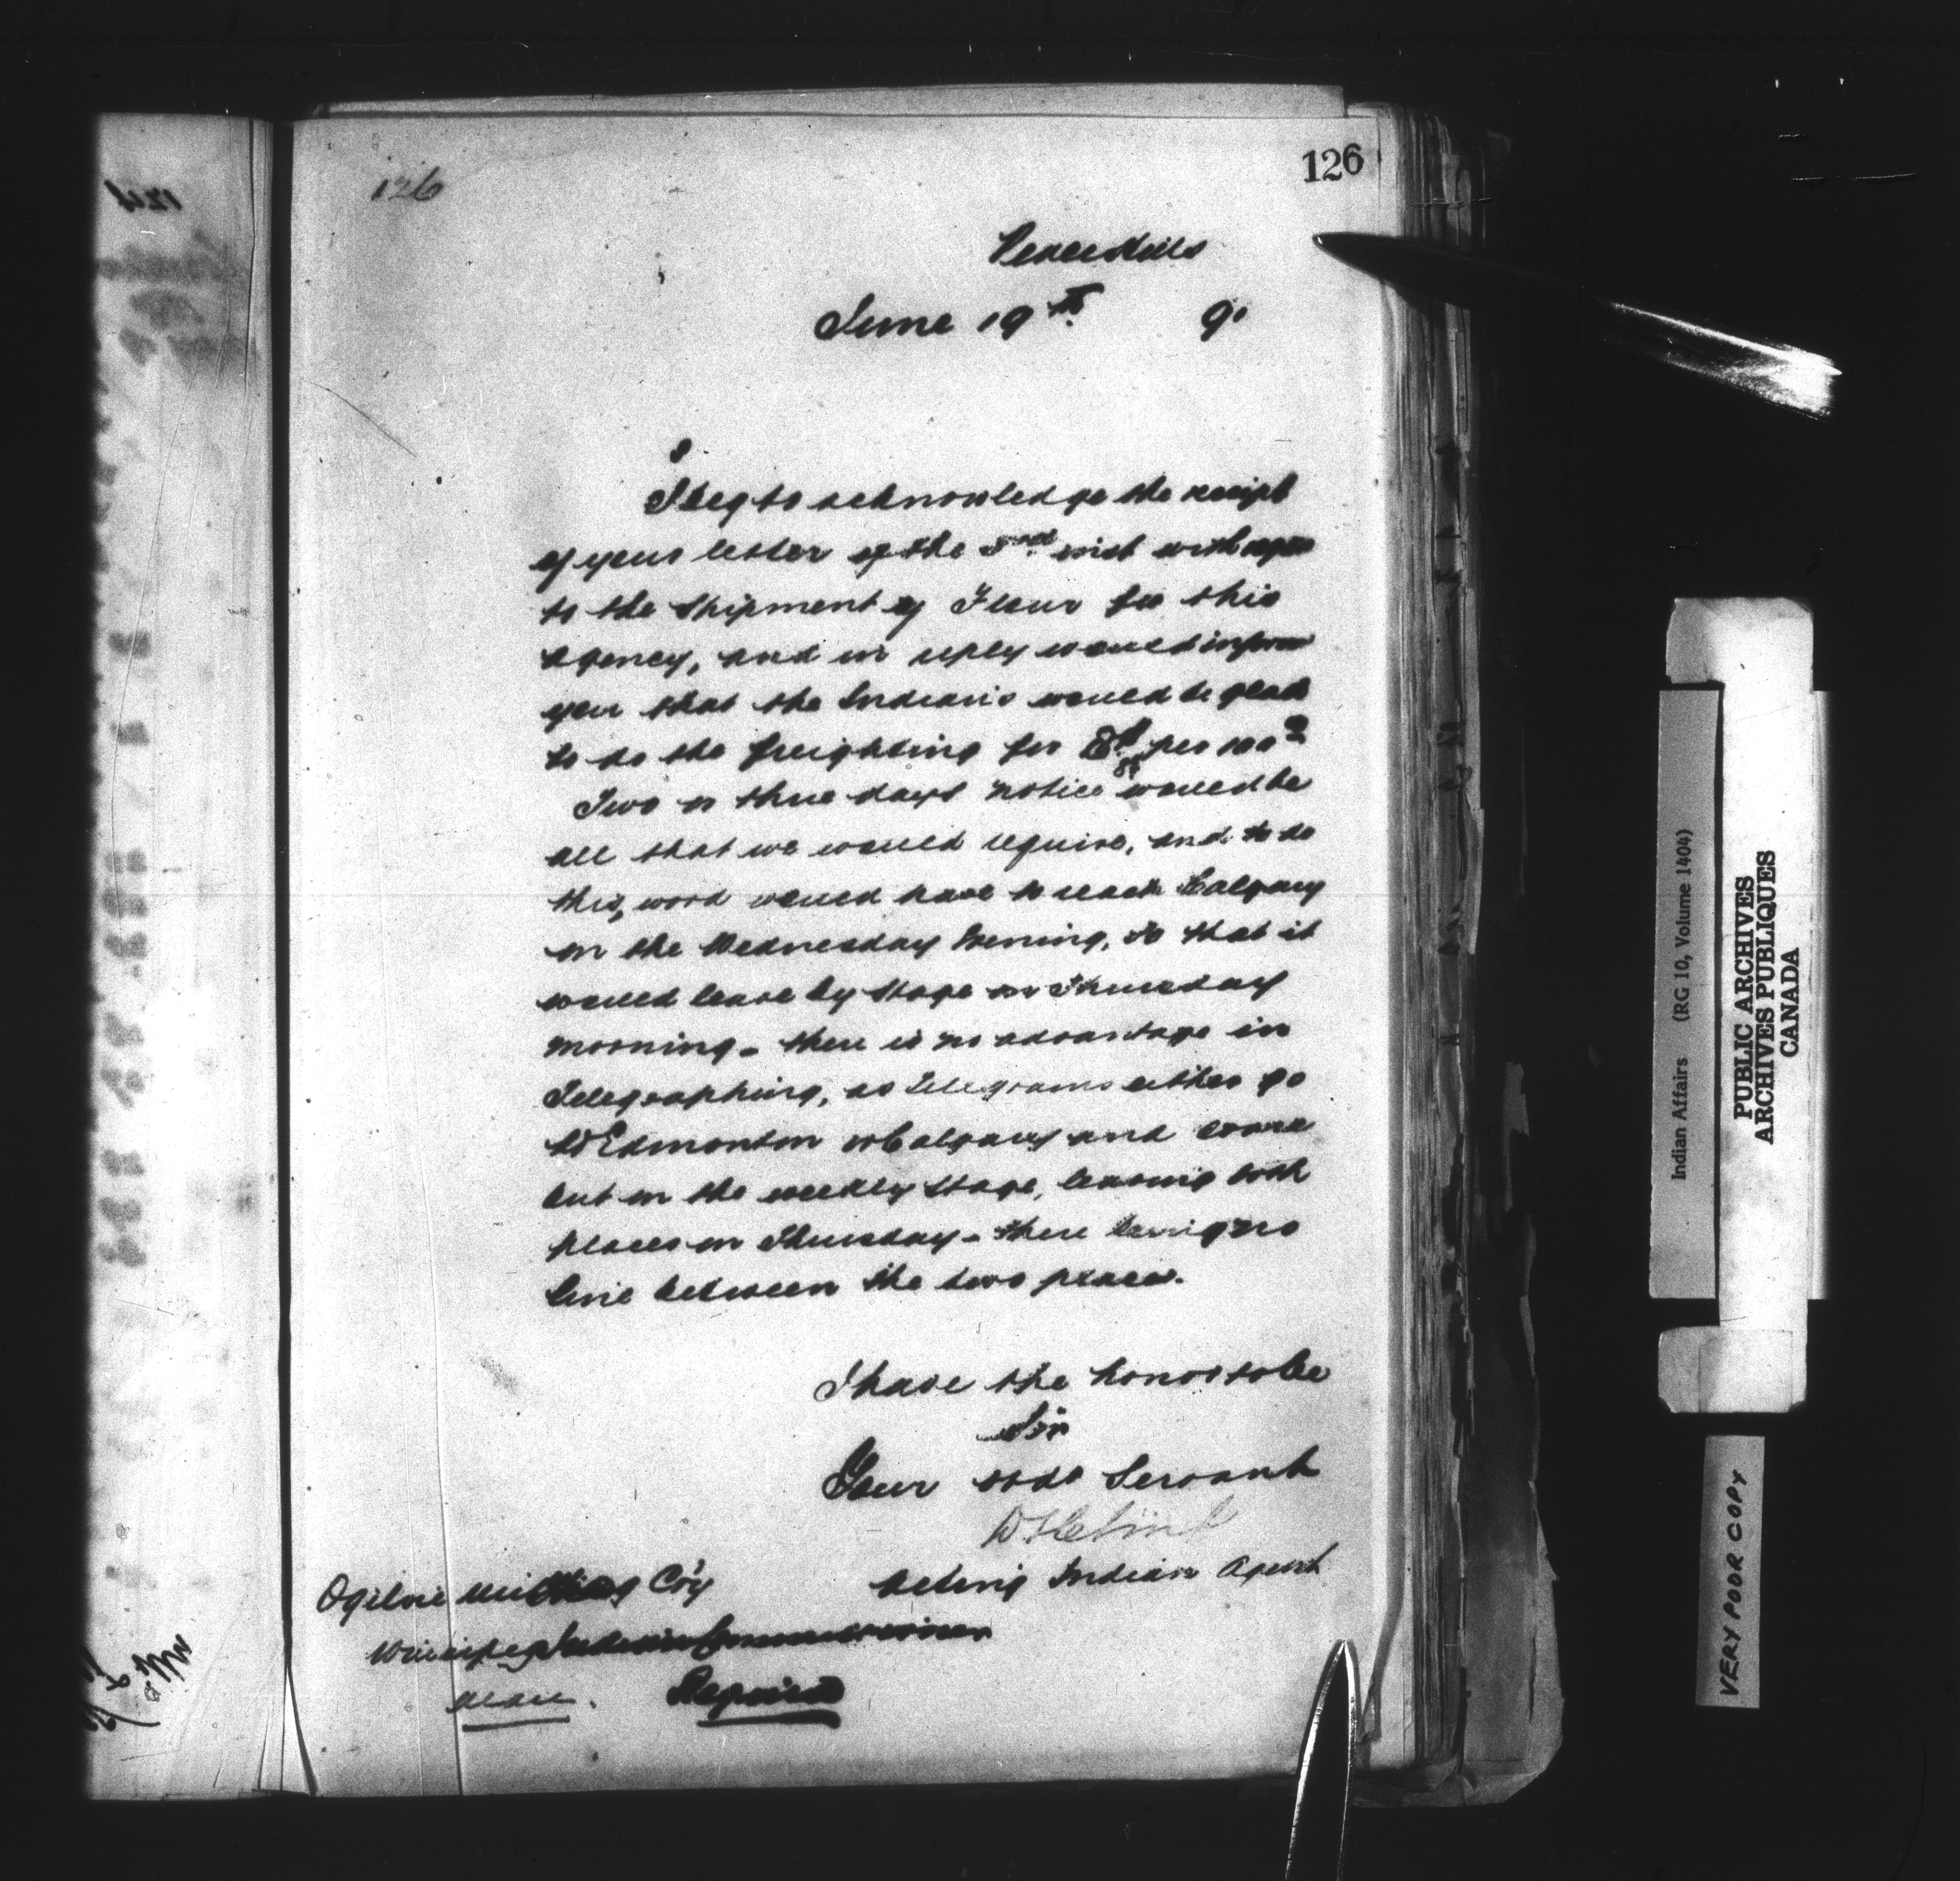 126
126
Peace Hills
June 19th 91
I beg to acknowledge the receipt
of your letter of the 3rd inst with
to the shipment of Flour for this
Agency, and in reply would inform
you that the Indians would be glad
to do the freighting for per 100
Two or three days notice would be
all that we would require, and to do
this, word would have to reach Calgary
on the Wednesday Evening, so that it
would leave by Stage on Thursday
morning - there is no advantage in
Telegraphing, as Telegrams either go
to Edmonton or Calgary and come
out on the weekly stage, leaving both
places on Thursday - there being no
line between the two places.
I have the honor to be
Sir
Your obdt Servant
Acting Indian Agent
Ogilvie Milling Co'y
Winnipeg Indian Commissioner
Man. Regina
Indian Affairs (RG 10, Volume 1404)
PUBLIC ARCHIVES
ARCHIVES PUBLIQUES
CANADA
VERY POOR COPY